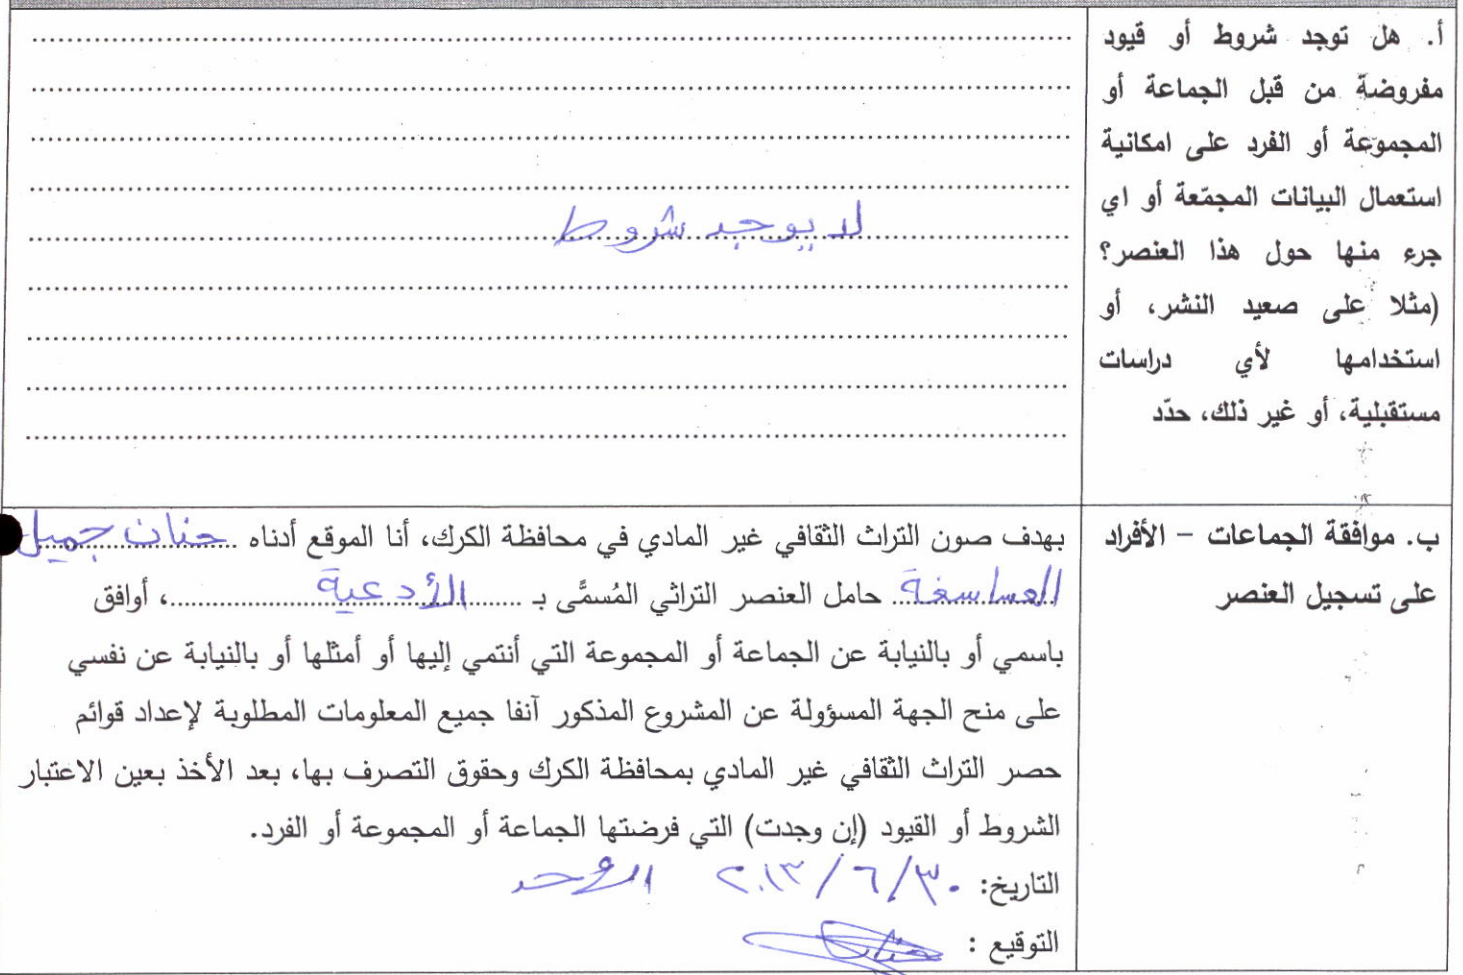 أ. هل توجد شروط أو قيود
مفروضة من قبل الجماعة أو
المجموعة أو الفرد على امكانية
استعمال البيانات المجمّعة أو اي
جزء منها حول هذا العنصر؟
(مثلا على صعيد النشر، أو
استخدامها لأي دراسات
مستقبلية، أو غير ذلك، حدّد
لا يوجد شروط
ب. موافقة الجماعات – الأفراد
على تسجيل العنصر
بهدف صون التراث الثقافي غير المادي في محافظة الكرك، أنا الموقع أدناه حنان جميل
العساسفة حامل العنصر التراثي المُسمَّى بـ الأدعية، أوافق
باسمي أو بالنيابة عن الجماعة أو المجموعة التي أنتمي إليها أو أمثلها أو بالنيابة عن نفسي
على منح الجهة المسؤولة عن المشروع المذكور آنفا جميع المعلومات المطلوبة لإعداد قوائم
حصر التراث الثقافي غير المادي بمحافظة الكرك وحقوق التصرف بها، بعد الأخذ بعين الاعتبار
الشروط أو القيود (إن وجدت) التي فرضتها الجماعة أو المجموعة أو الفرد.
التاريخ: ٣٠/٦/٢٠١٣ الأحد
التوقيع : حنان